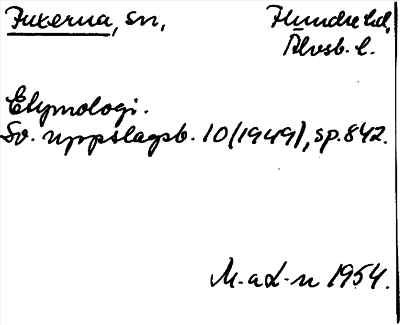 Fuxerna, sn,
Flundre hd,
Älvsb. l.
Etymologi.
Sv. uppslagsb. 10 (1949), sp. 842.
M. a L-n 1954.